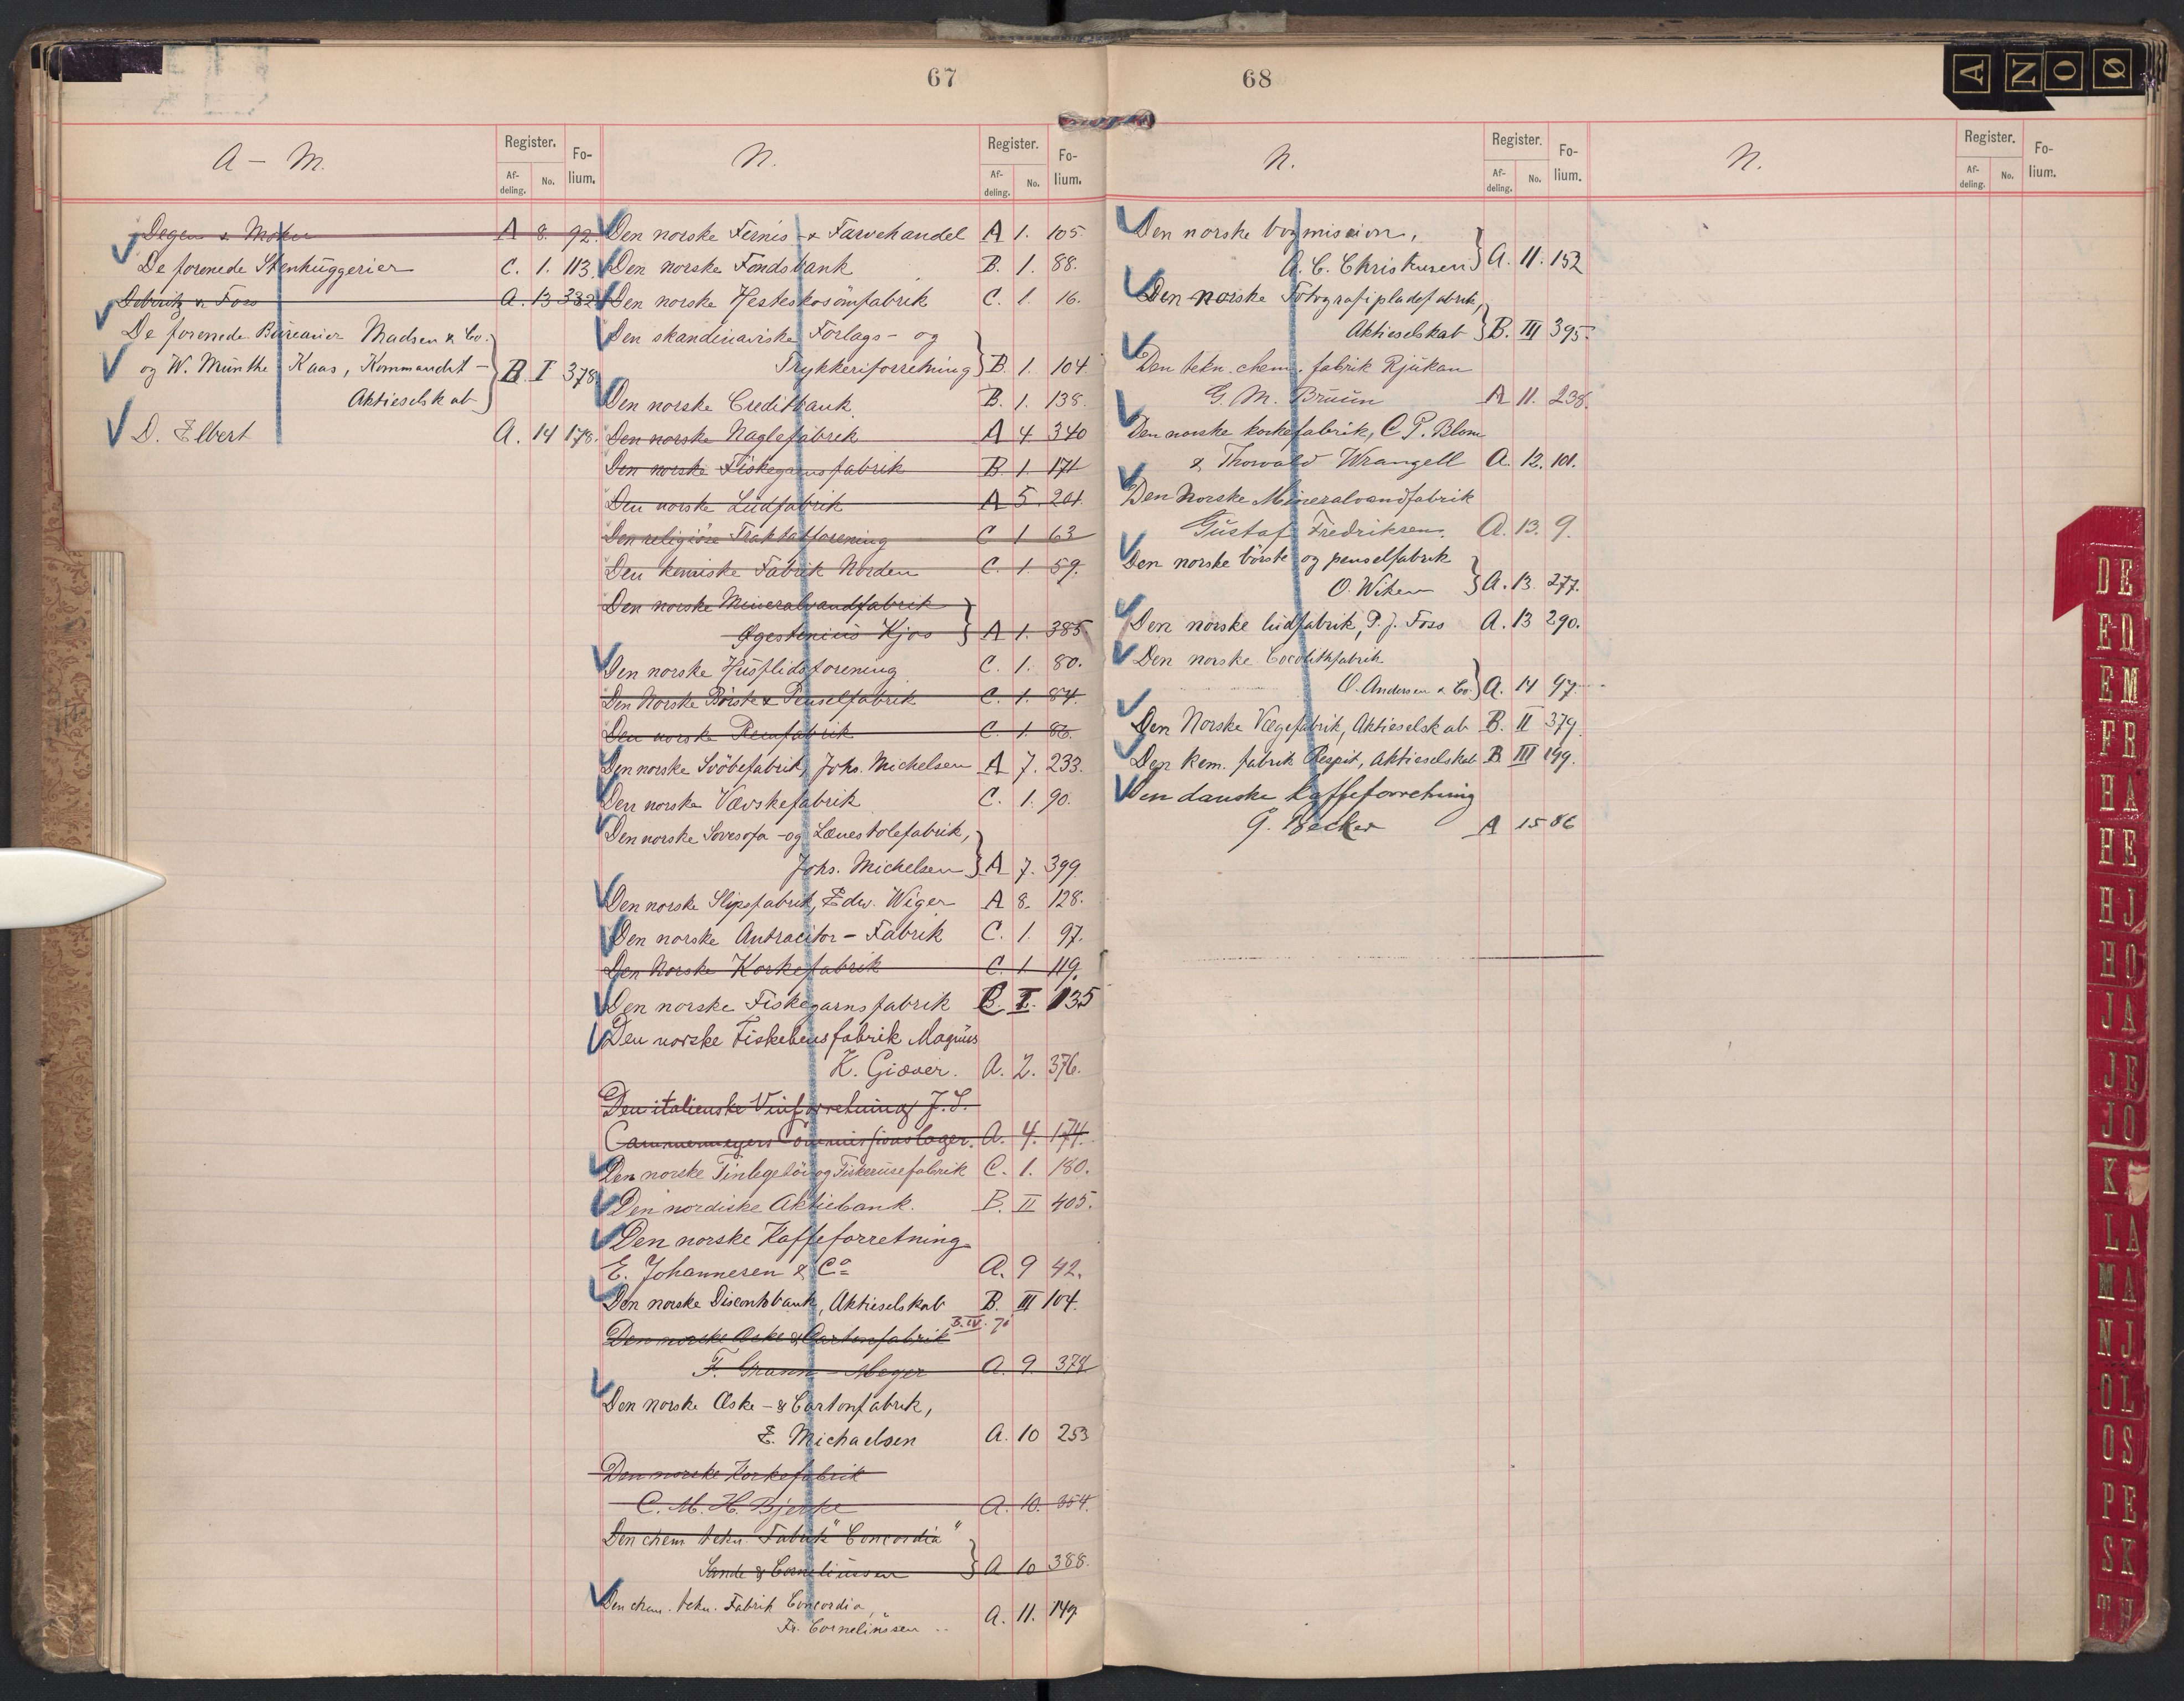 67
A – M.
Register.
Af-
deling.
No.
Fo-
lium.
Degen & A. 8. 92.
De forenede Stenhuggerier C. 1. 113.
Dobritz & Foss A. 13 382
De forenede Bureauer Madsen & Co.
og W. Münthe Kaas, Kommandit-
Aktieselskab B. I 378
D. Elbert A. 14 178.
N.
Register.
Af-
deling.
No.
Fo-
lium.
Den norske Fernis- & Farvehandel A 1. 105.
Den norske Fondsbank B. 1. 88.
Den norske Hesteskosömfabrik C. 1. 16.
Den skandinaviske Forlags- og
Trykkeriforretning B. 1. 104
Den norske Creditbank B. 1. 138.
Den norske Naglefabrik A 4 340
Den norske Fiskegarnsfabrik B 1. 171
Den norske Ludfabrik A 5. 201.
Den religiöse Traktatforening C 1 63
Den kemiske Fabrik Norden C. 1. 59.
Den norske Mineralvandfabrik
Kjos A 1. 385
Den norske Husflidsforening C. 1. 80.
Den Norske Börste & Penselfabrik C. 1. 84.
Den norske Remfabrik C. 1. 86.
Den norske Svöbefabrik, Johs. Michelsen A 7. 233.
Den norske Vævskefabrik C. 1. 90.
Den norske Sovesofa- og Lænestolefabrik,
Johs. Michelsen A 7. 399.
Den norske Slipsfabrik, Edw. Wiger A 8. 128.
Den norske Antracitor-Fabrik C. 1. 97.
Den Norske Korkefabrik C. 1. 119.
Den norske Fiskegarnsfabrik B. I. 135
Den norske Fiskebensfabrik Magnus
K. Giæver. A. 2. 376.
Den italienske Vinforretning J. S.
Cammermeyers Commissionslager. A. 4. 174.
Den norske og Fiskerusefabrik C. 1. 180.
Den nordiske Aktiebank. B. II 405.
Den norske Kaffeforretning
E. Johannesen & Co A. 9 42.
Den norske Discontobank, Aktieselskab B. III 104.
B. IV. 71
Den norske Æske & Cartonfabrik
F. Grann-Meyer A. 9. 378
Den norske Æske- & Cartonfabrik,
E. Michaelsen A. 10 253
Den norske Korkefabrik
C. M. H. Bjerke A. 10. 354.
Den chem. tekn. Fabrik "Concordia"
Sande & Corneliussen A 10 388.
Den chem. tekn. Fabrik Concordia,
Fr. Corneliussen A. 11. 149.
68
N.
Register.
Af-
deling.
No.
Fo-
lium.
Den norske bogmission,
A. C. Christensen A. 11. 152
Den norske Fotografipladefabrik,
Aktieselskab B. III 395.
Den tekn. chem. fabrik Rjukan
G. M. Bruun A 11. 238.
Den norske korkefabrik, C. P. Blom
& Thorvald Wrangell A. 12. 101.
Den Norske Mineralvandfabrik
Gustaf Fredriksen. A. 13. 9.
Den norske börste og penselfabrik
O. Wiken A. 13. 277.
Den norske ludfabrik, P. J. Foss A. 13 290.
Den norske Cocolithfabrik
O. Andersen & Co. A. 14 97.
Den Norske Vægefabrik, Aktieselskab B. II 379.
Den kem. fabrik Respit, Aktieselskab B III 199.
Den danske kaffeforretning
G. Becker A 15 86
N.
Register.
Af-
deling.
No.
Fo-
lium.
A N O Ø
DE
ED
EM
FR
HA
HE
HJ
HO
JA
JE
JO
K
LA
MA
NJ
OL
OS
PE
SK
TH